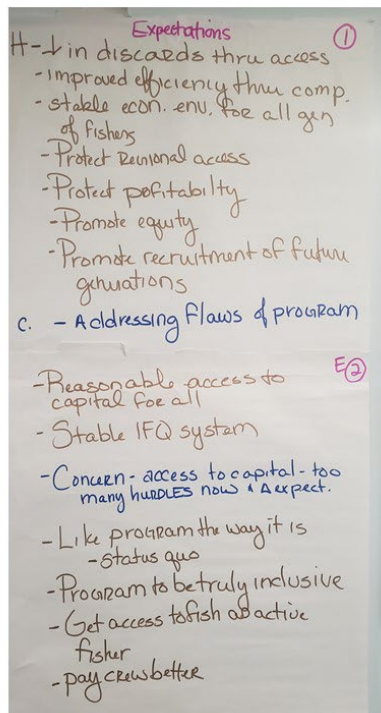 Expectations ①
H - ↓ in discards thru access
- Improved efficiency thru comp.
- stable econ. env. for all gen
of fishers
- Protect Regional access
- Protect pofitabilty
- Promote equity
- Promote recruitment of future
generations
C. - Addressing flaws of program
E②
- Reasonable access to
capital for all
- Stable IFQ system
- Concern - access to capital - too
many hurdles now & Δ expect.
- Like program the way it is
- status quo
- Program to be truly inclusive
- Get access to fish as active
fisher
- pay crew better